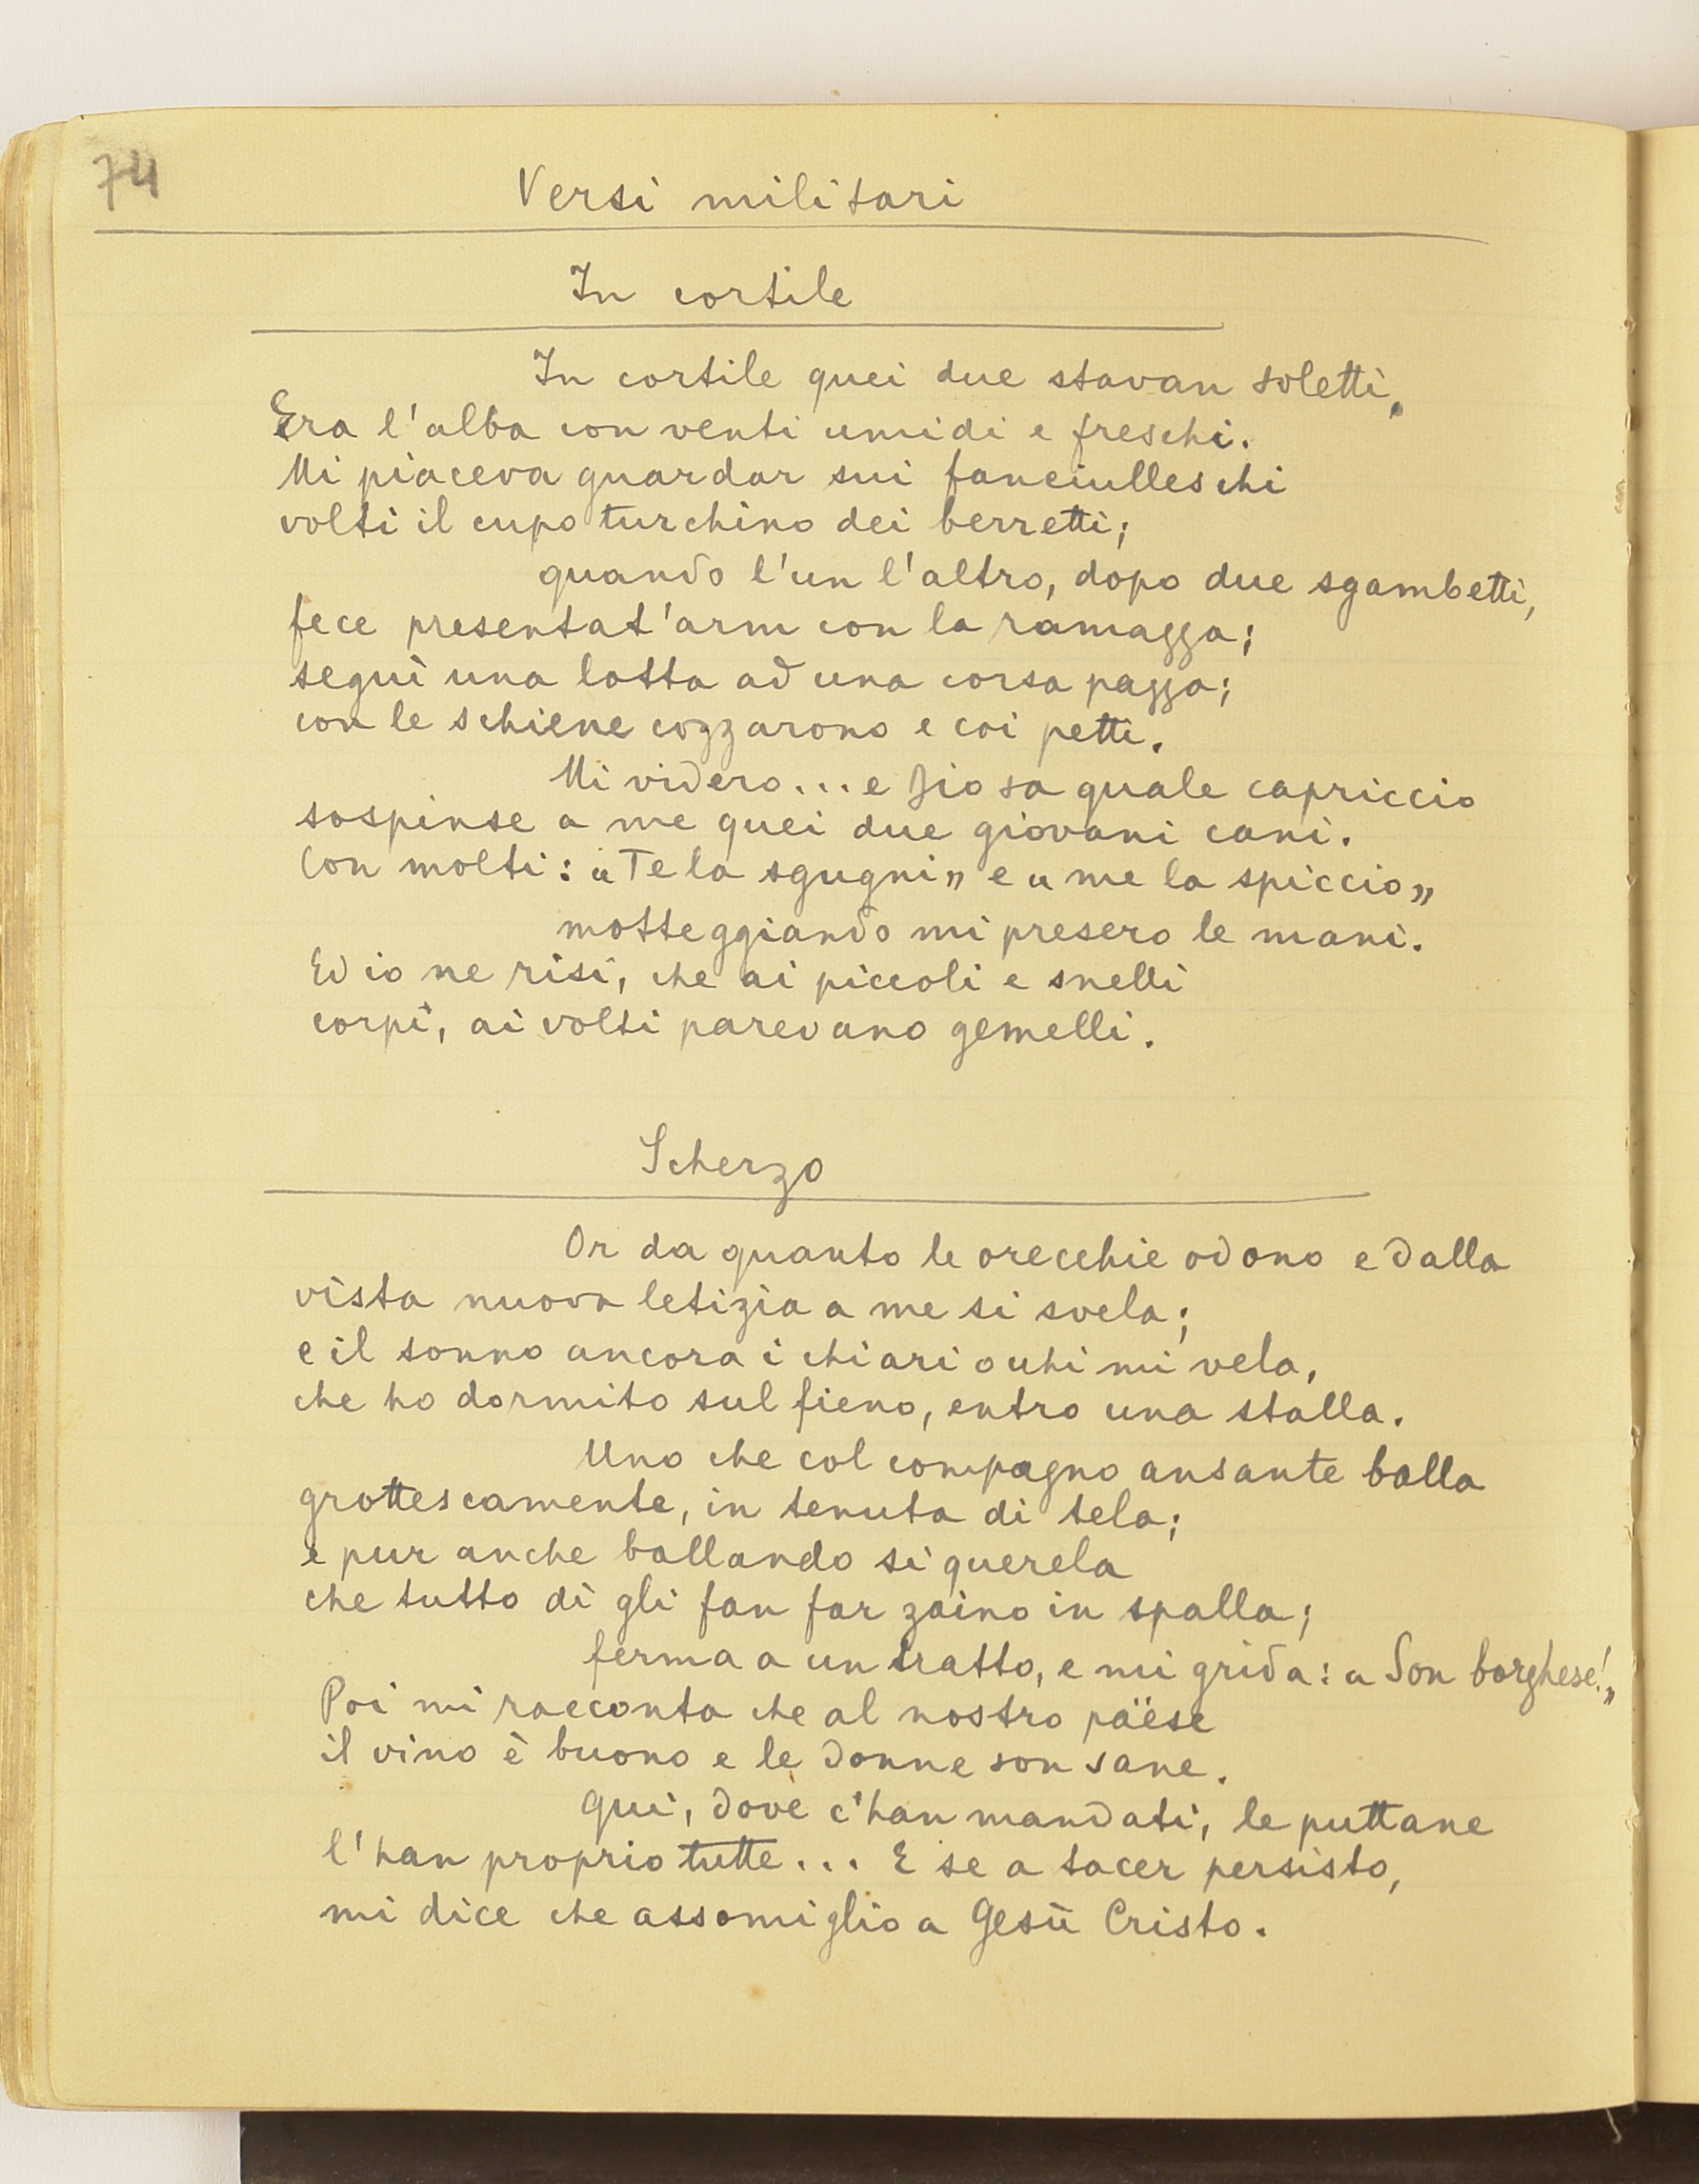 74
Versi militari
In cortile
In cortile quei due stavan soletti.
Era l'alba con venti umidi e freschi.
Mi piaceva guardar sui fanciulleschi
volti il cupo turchino dei berretti;
quando l'un l'altro, dopo due sgambetti,
fece presentat'arm con la ramazza;
seguì una lotta ad una corsa pazza;
con le schiene cozzarono e coi petti.
Mi videro... e Dio sa quale capriccio
sospinse a me quei due giovani cani.
Con molti: «Te la sgugni» e «me la spiccio»
motteggiando mi presero le mani.
Ed io ne risi, che ai piccoli e snelli
corpi, ai volti parevano gemelli.
Scherzo
Or da quanto le orecchie odono e dalla
vista nuova letizia a me si svela;
e il sonno ancora i chiari occhi mi vela,
che ho dormito sul fieno, entro una stalla.
Uno che col compagno ansante balla
grottescamente, in tenuta di tela;
e pur anche ballando si querela
che tutto dì gli fan far zaino in spalla;
ferma a un tratto, e mi grida: «Son borghese!»
Poi mi racconta che al nostro päese
il vino è buono e le donne son sane.
Qui, dove c'han mandati, le puttane
l'han proprio tutte... E se a tacer persisto,
mi dice che assomiglio a Gesù Cristo.